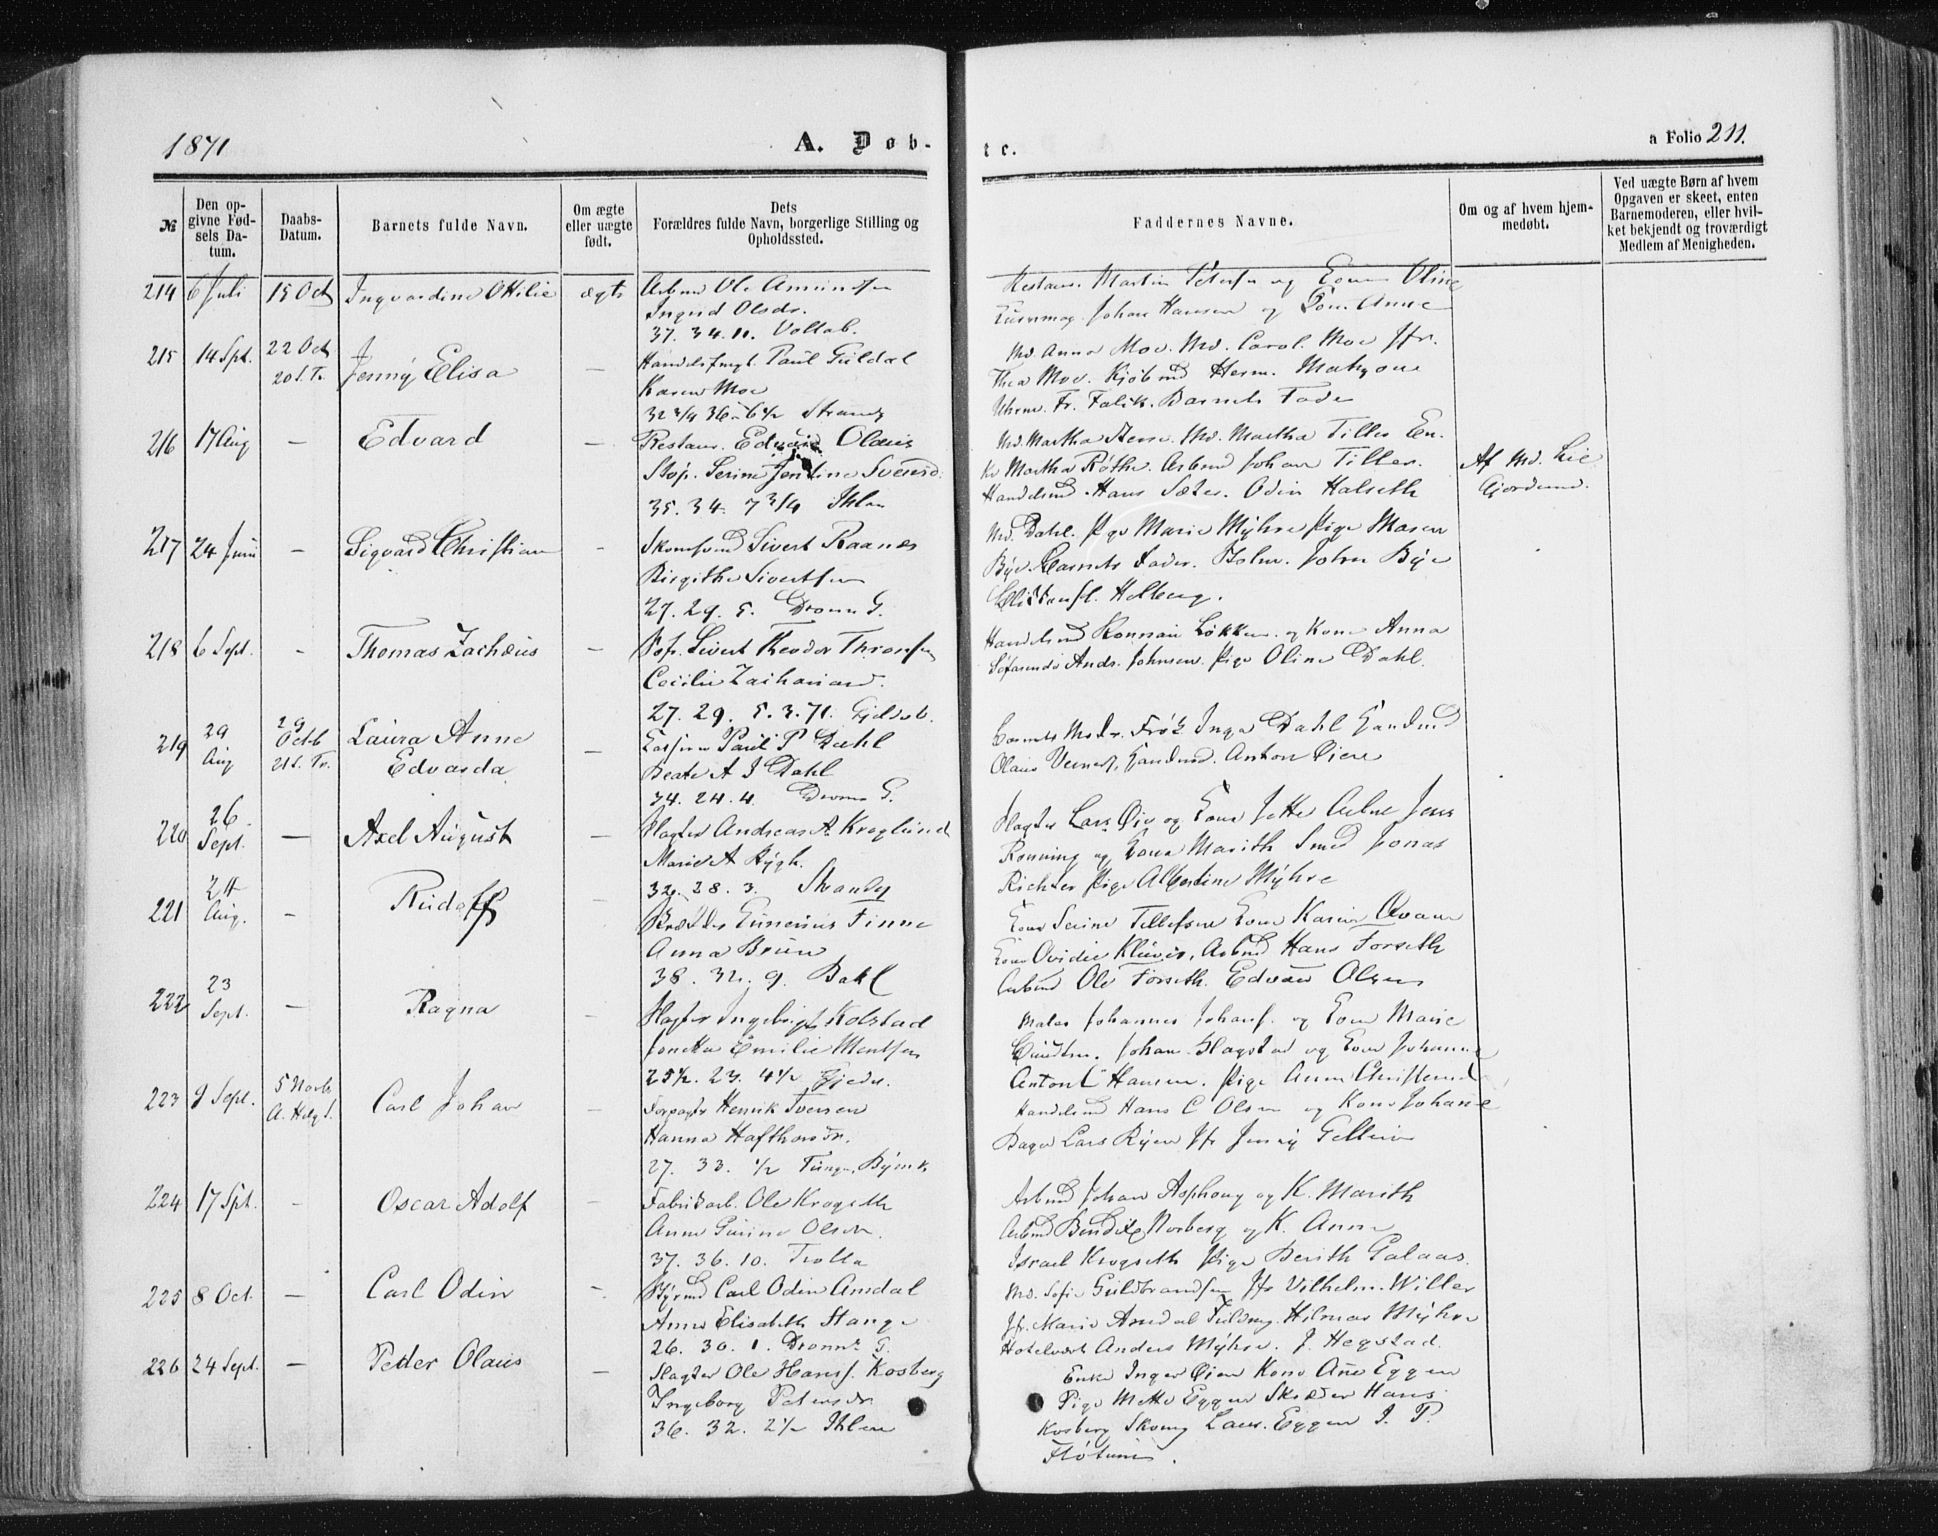 1871
A. Døb-
te.
a Folio 211.
№
Den op-
givne Fød-
sels Da-
tum.
Daabs-
Datum.
Barnets fulde Navn.
Om ægte
eller uægte
født.
Dets
Forældres fulde Navn, borgerlige Stilling og
Opholdssted.
Faddernes Navne.
Om og af hvem hjem-
medøbt.
Ved uægte Børn af hvem
Opgaven er skeet, enten
Barnemoderen, eller hvil-
ket bekjendt og troværdigt
Medlem af Menigheden.
214 6 Juli 15 Oct Ingvardine Ottilie ægte Arbmd Ole Amundsen
Ingrid Olsdr.
37. 34. 11. Vollab.
Martin Petersen og Kone Oline
Johan Hansen og Kone Anne
215 14 Spt. 22 Oct Jenny Elisa — Paul Guldal
20 S. Tr.
Karen Moe
32 3/4 36 - 6 1/2 Strandg
Md. Anna Moe. Md. Carol. Moe Jfr.
Thea Moe. Kjøbmd Herm.
Fr. Falck. Barnets Fader
216 17 Aug — Edvard — Restaur. Edvard Olaus
Stop. Serine Jentine Svensd.
35. 34. 7 3/4 Ihlen
Md. Martha Md. Martha Tiller En-
ke Martha Røthe. Arbmd Johan Tiller.
Handelsmd. Hans Sæter. Odin Halseth
Af Md. Lie
Gjordemd.
217 24 Juni - Sigvard Christian - Sivert Raanes
Birgithe Sivertsen
27. 29. 5. Dronn G.
Md. Dahl. Pige Marie Myhre Pige Maren
Bye Barnets Fader. John Bye
Helberg.
218 6 Sept. - Thomas Zachæus — Sivert Theodor Thronsen
Cecilie Zachariasd.
27. 29. 5. 3. 71.
Handelsmd Løkken og Kone Anna
Søfarende Ands. Johnsen. Pige Oline Dahl.
219 29 Aug 29 Octb Laura Anne — Paul P Dahl
21 S. Tr. Edvarda
Beate A J Dahl
34. 24. 4. Dronn G.
Barnets Moder. Frøk Inga Dahl
Olaus Anton Øien
220 26. Sept. — Axel August — Slagter Andreas A. Kroglund
Marie A Rygh.
32. 28. 3. Strandg
Slagter Lars Øie og Kone Jette Arbm Jens
Rønning og Kone Marith Smed Jonas
Richter Pige Albertine Myhre
221 24 Aug. - Rudolf - Finne
Anna Brun
38. 32. 9. Bakl
Kone Serine Tellefsen Kone Karen
Kone Ovidie Klüver, Arbmd Hans Forseth
Arbmd Ole Forseth. Edvard Olsen
222 23 Sept. — Ragna - Slagter Ingebrigt Kolstad
Jonetta Emilie Mentsen
25 1/2. 23. 4 1/2
Maler Johannes Johans. og Kone Marie
Johan Hagstad og Kone Johanne
Anton C Hansen. Pige Anne
223 9 Sept. 5 Novb Carl Johan — Forpagter Henrik Iversen
A. Helg. S.
Hanna Hafthorsdr.
27. 33. 1/2
Handelsmd Hans C Olsen og Kone Johanne
Bager Lars Ryen Jfr Jenny Gellein
224 17 Spt. - Oscar Adolf — Fabrikarb. Ole Krogseth
Anne Gurine Olsdr.
37. 36. 10. Trolla
Arbmd Johan Asphoug og K. Marith
Arbmd Bendix Norberg og K. Anne
Israel Krogseth Pige Berith Galaas
225 8 Oct. — Carl Odin — Styrmd Carl Odin Amdal
Anne Elisabeth Stange
26. 30. 1. Dronn. G.
Md. Sofie Guldbrandsen Jfr Vilhelm. Willer
Jfr. Marie Amdal Hilmar Myhre
Hotelvært Anders Myhre. J. Hegstad
226 24 Sept. — Petter Olaus — Slagter Ole Hans. Kosberg
Ingeborg Petersdr.
36. 32. 2 1/2 Ihlen
Enke Inger Øien Kone Ane Eggen
Pige Mette Eggen Skræder Hans
Kosberg Skomg Laur. Eggen J. P.